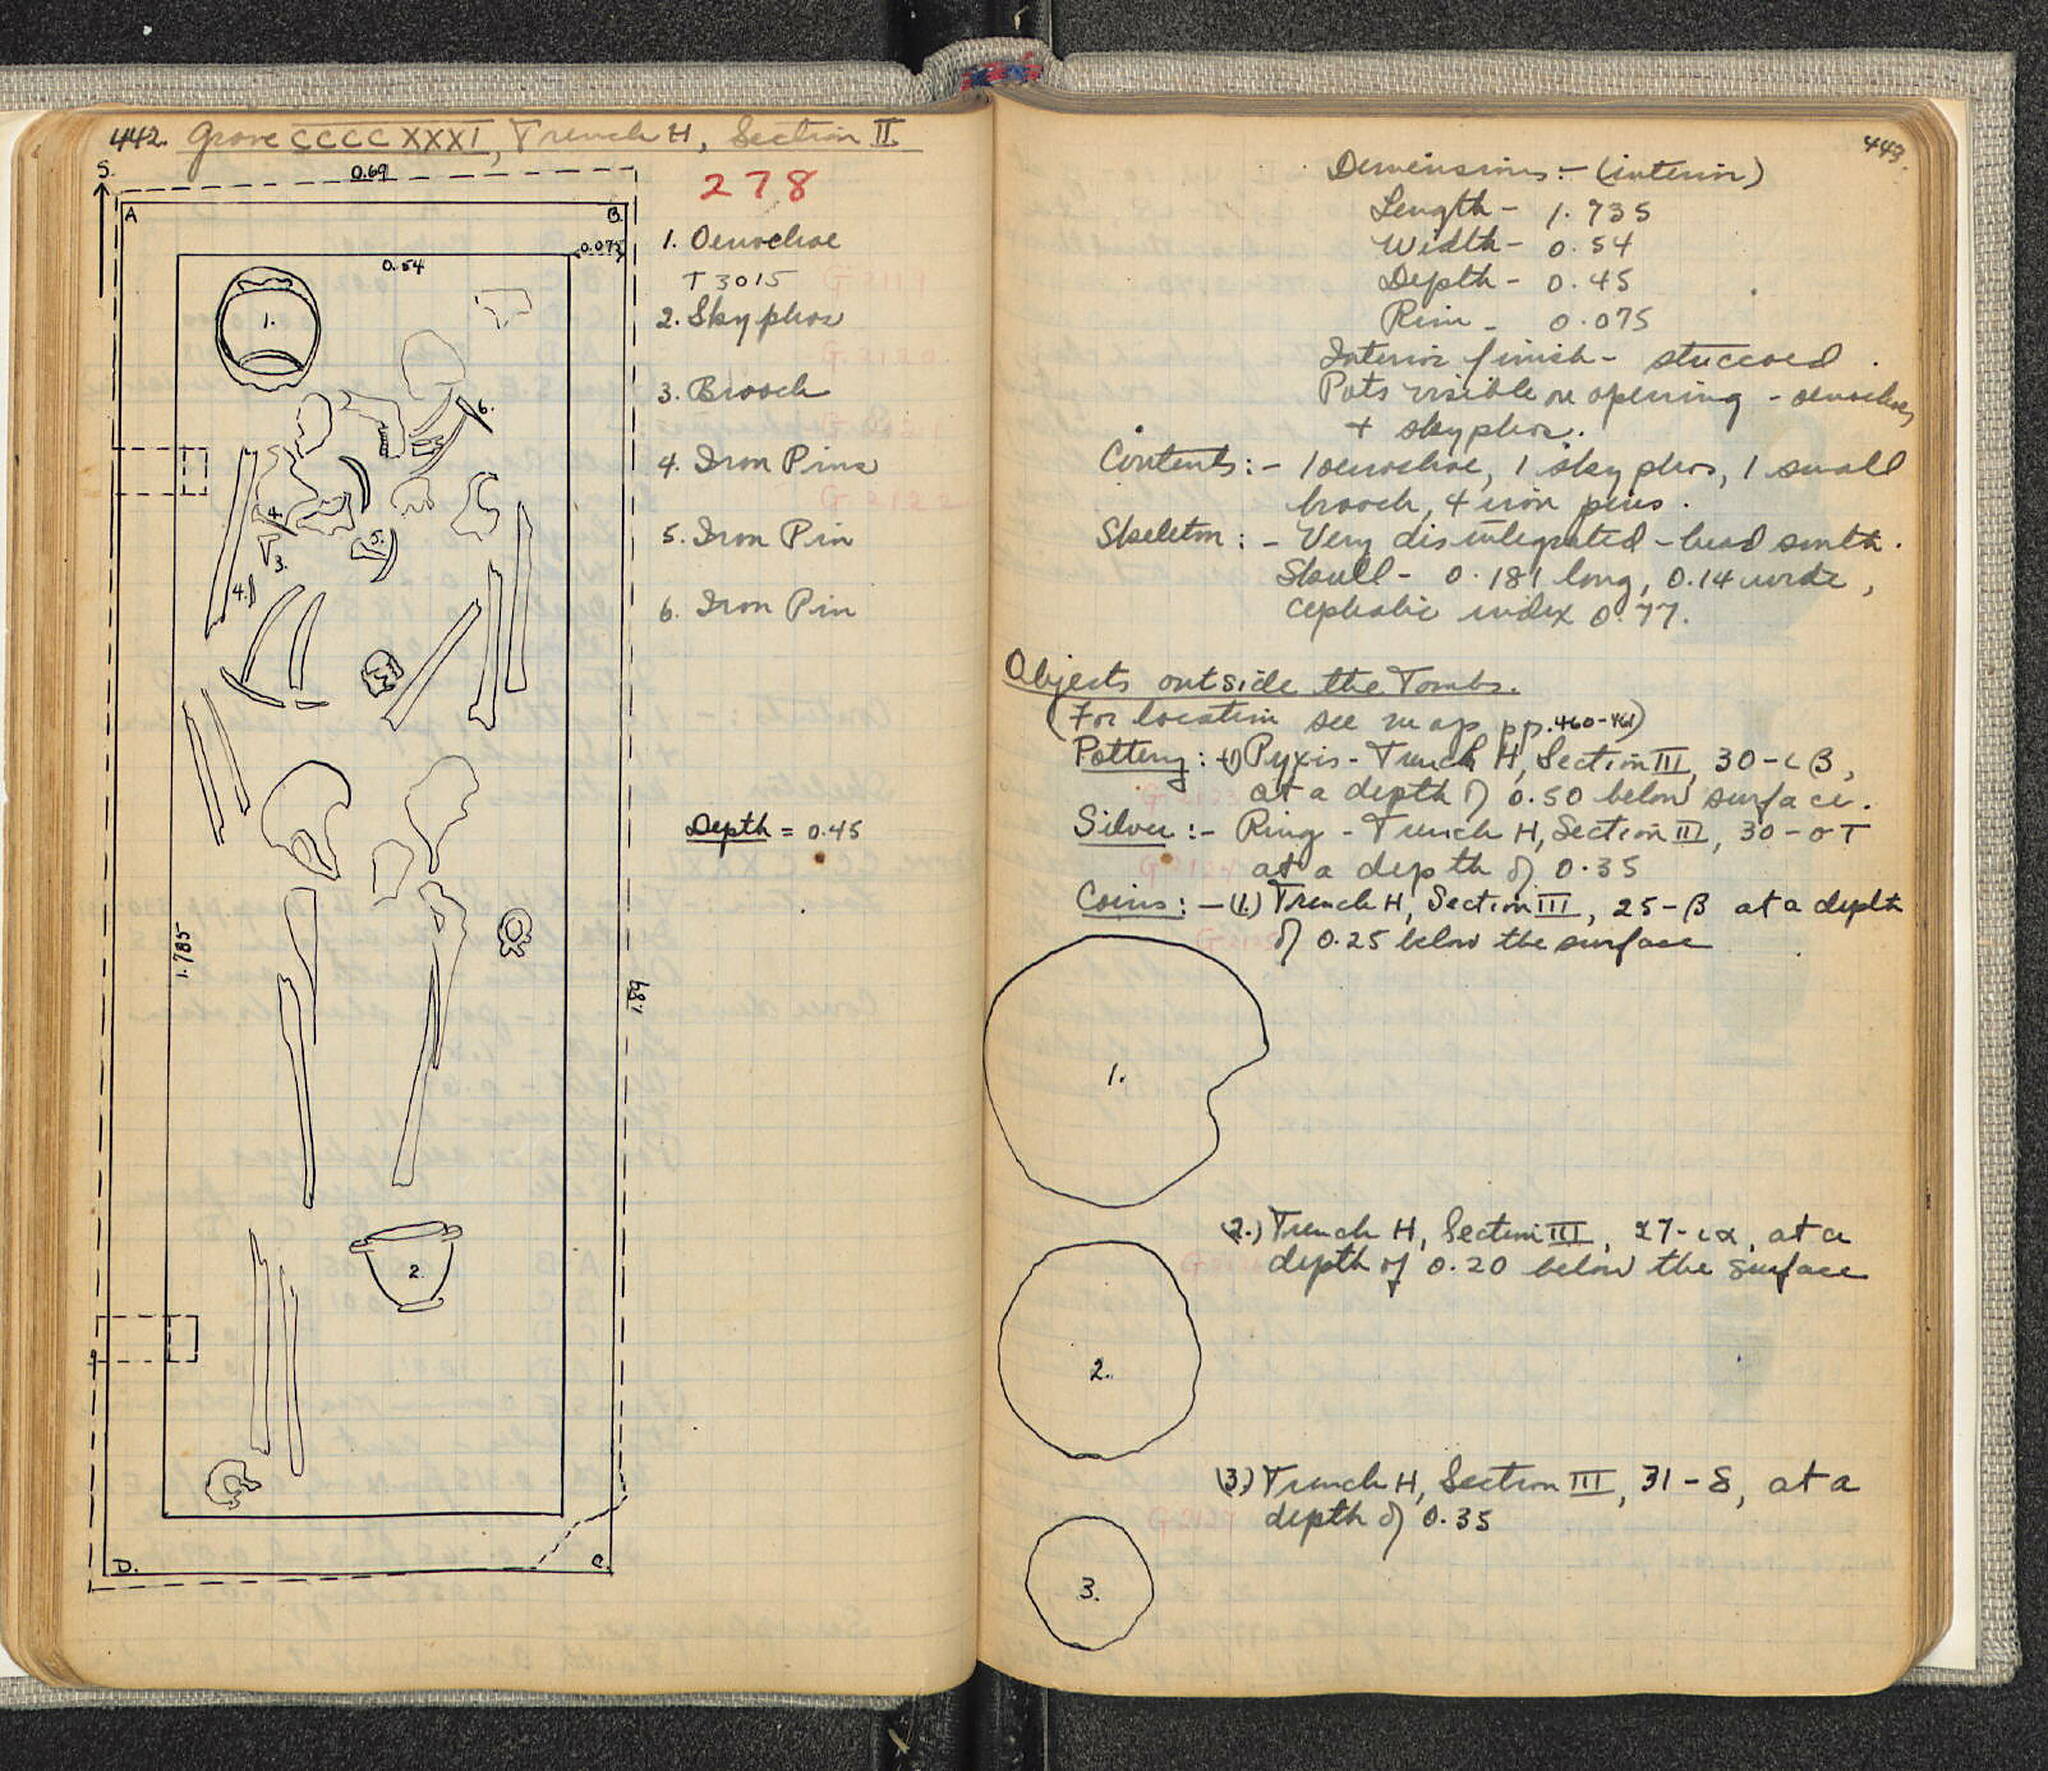 442. Grave CCCCXXXI, Trench H, Section II.
S.
0.69
278
A
B.
0.075
0.54
1.
6.
4.
3.
5.
4.
1.785
1.89
2.
D.
C.
1. Oenochoe
T 3015
2. Skyphos
3. Brooch
4. Iron Pins
5. Iron Pin
6. Iron Pin
Depth = 0.45
443.
Dimensions:- (interior)
Length - 1.735
Width - 0.54
Depth - 0.45
Rim - 0.075
Interior finish - stuccoed.
Pots visible on opening - oenochoe,
+ skyphos.
Contents:- 1 oenochoe, 1 skyphos, 1 small
brooch, 4 iron pins.
Skeleton:- Very disintegrated - head south.
Skull - 0.181 long, 0.14 wide,
cephalic index 0.77.
Objects outside the Tombs.
(For location see map pp. 460-461)
Pottery: (1) Pyxis - Trench H, Section III, 30-ιβ,
at a depth of 0.50 below surface.
Silver:- Ring - Trench H, Section III, 30-στ
at a depth of 0.35
Coins:- (1.) Trench H, Section III, 25-β at a depth
of 0.25 below the surface
1.
(2.) Trench H, Section III, 27-ια, at a
depth of 0.20 below the surface
2.
(3.) Trench H, Section III, 31-δ, at a
depth of 0.35
3.